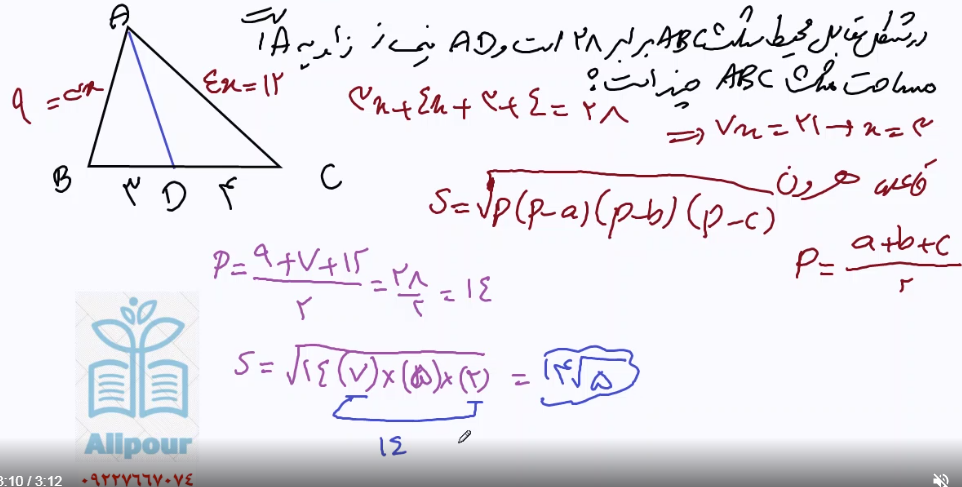 در شکل مقابل محیط مثلث ABC برابر ۲۸ است و AD نیمساز زاویه A است
مساحت مثلث ABC چیز است؟
A
۹ = ۳x
۴x = ۱۲
B ۳ D ۴ C
۳x + ۴x + ۳ + ۴ = ۲۸
⇒ ۷x = ۲۱ → x = ۳
قاعده هرون
S = √P(P-a)(P-b)(P-c)
P = a+b+c / ۲
P = ۹+۷+۱۲ / ۲ = ۲۸ / ۲ = ۱۴
S = √۱۴(۷)×(۵)×(۲) = ۱۴√۵
۱۴
Alipour
۰۹۲۲۷۶۶۷۰۷۴
3:10 / 3:12